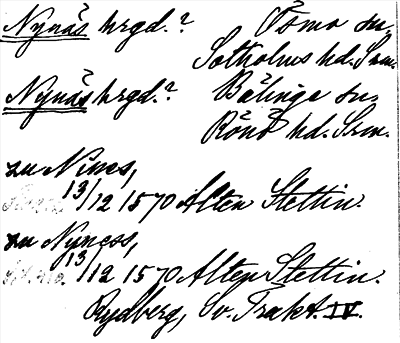 Nynäs hrgd.? Ösmo sn.
Sotholms hd. Srm.
Nynäs hrgd.? Bälinge sn.
Rönö hd. Srm.
zu Nines,
13/12 1570 Alten Stettin.
zu Nyness,
13/12 1570 Alten Stettin.
Rydberg, Sv. Trakt. IV.